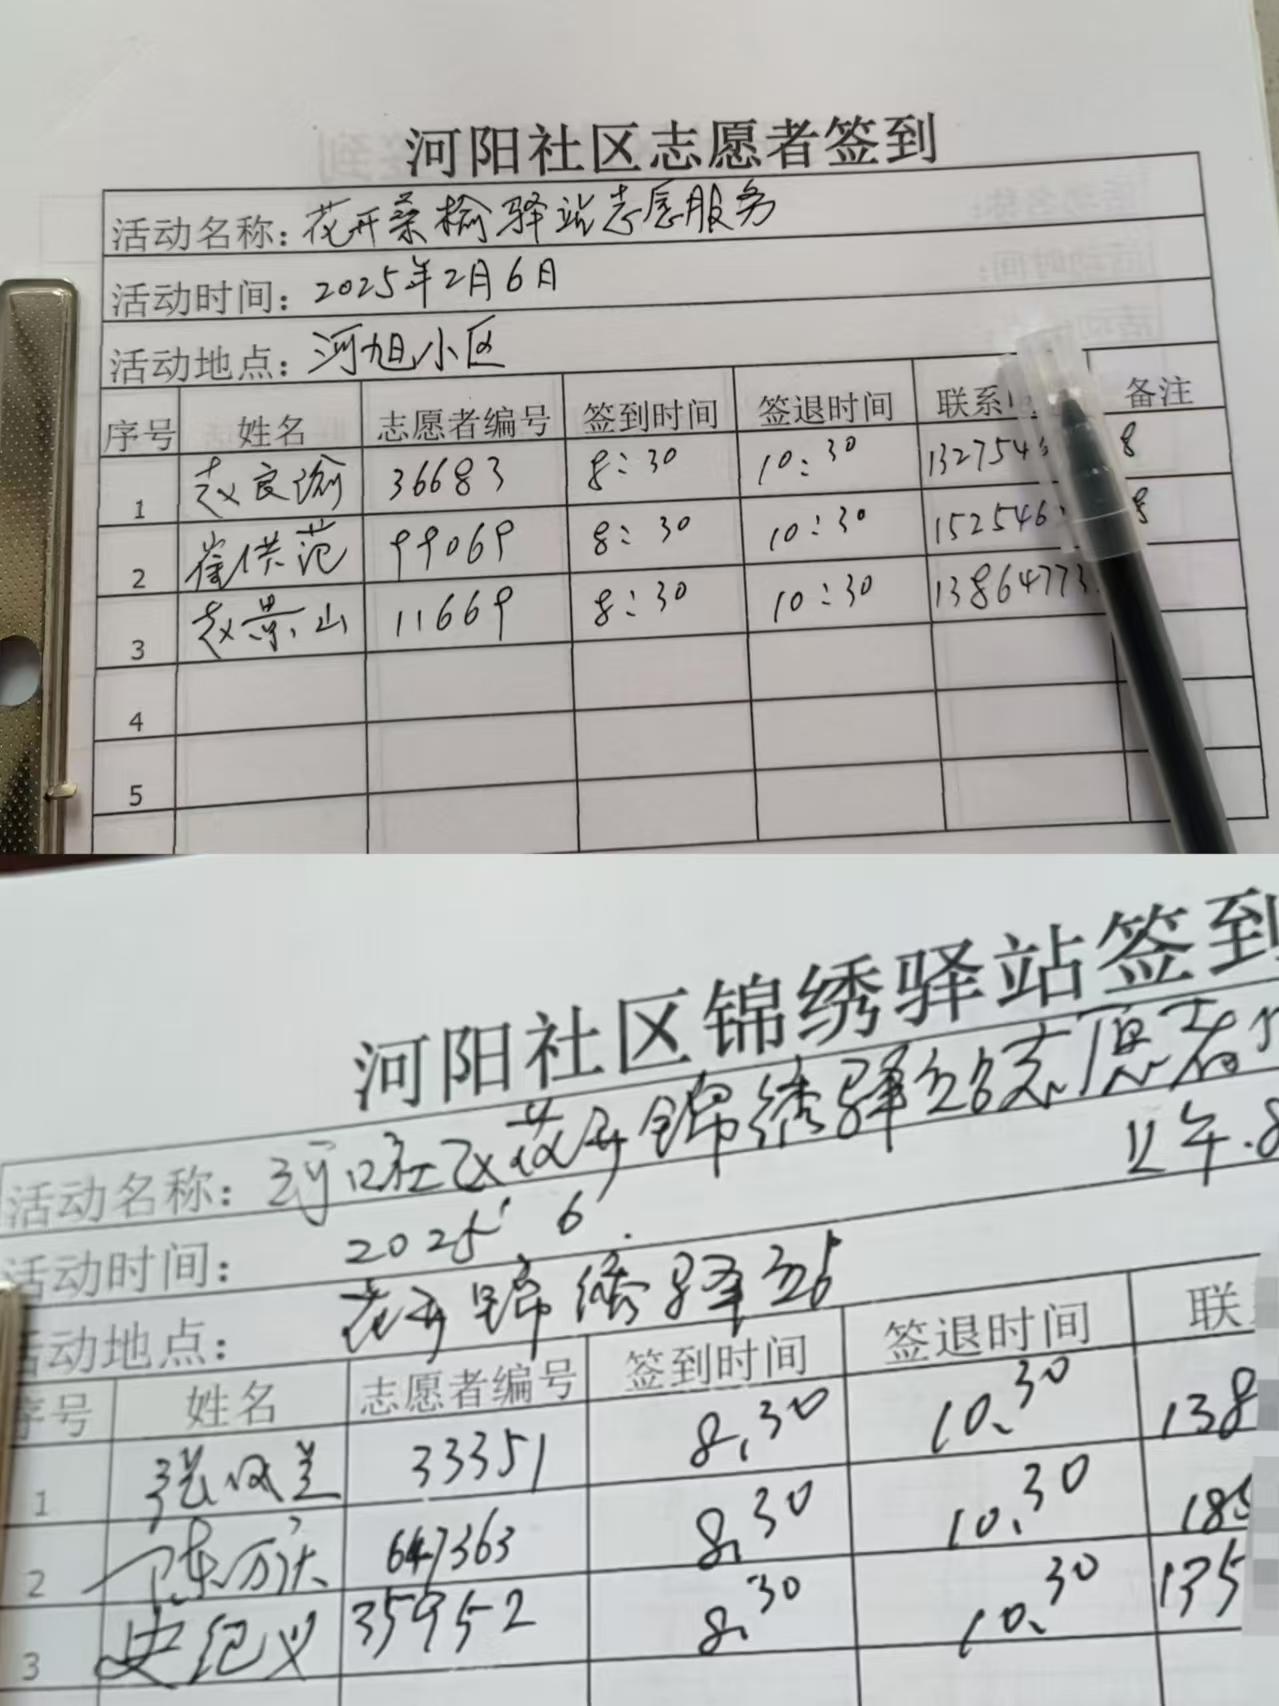 河阳社区志愿者签到
活动名称：花开桑榆驿站志愿服务
活动时间：2025年2月6日
活动地点：河旭小区
序号 姓名 志愿者编号 签到时间 签退时间 联系 备注
1 赵良瑜 36683 8：30 10：30 132754 8
2 崔供范 99069 8：30 10：30 152546 8
3 赵景山 11669 8：30 10：30 13864773
4
5
河阳社区锦绣驿站签到
活动名称：河阳社区花开锦绣驿站志愿者
活动时间：2025 6 上午.8
活动地点：花开锦绣驿站
序号 姓名 志愿者编号 签到时间 签退时间 联
1 张风兰 33351 8.30 10.30 138
2 陈万庆 647363 8.30 10.30 185
3 史纪义 35952 8.30 10.30 135